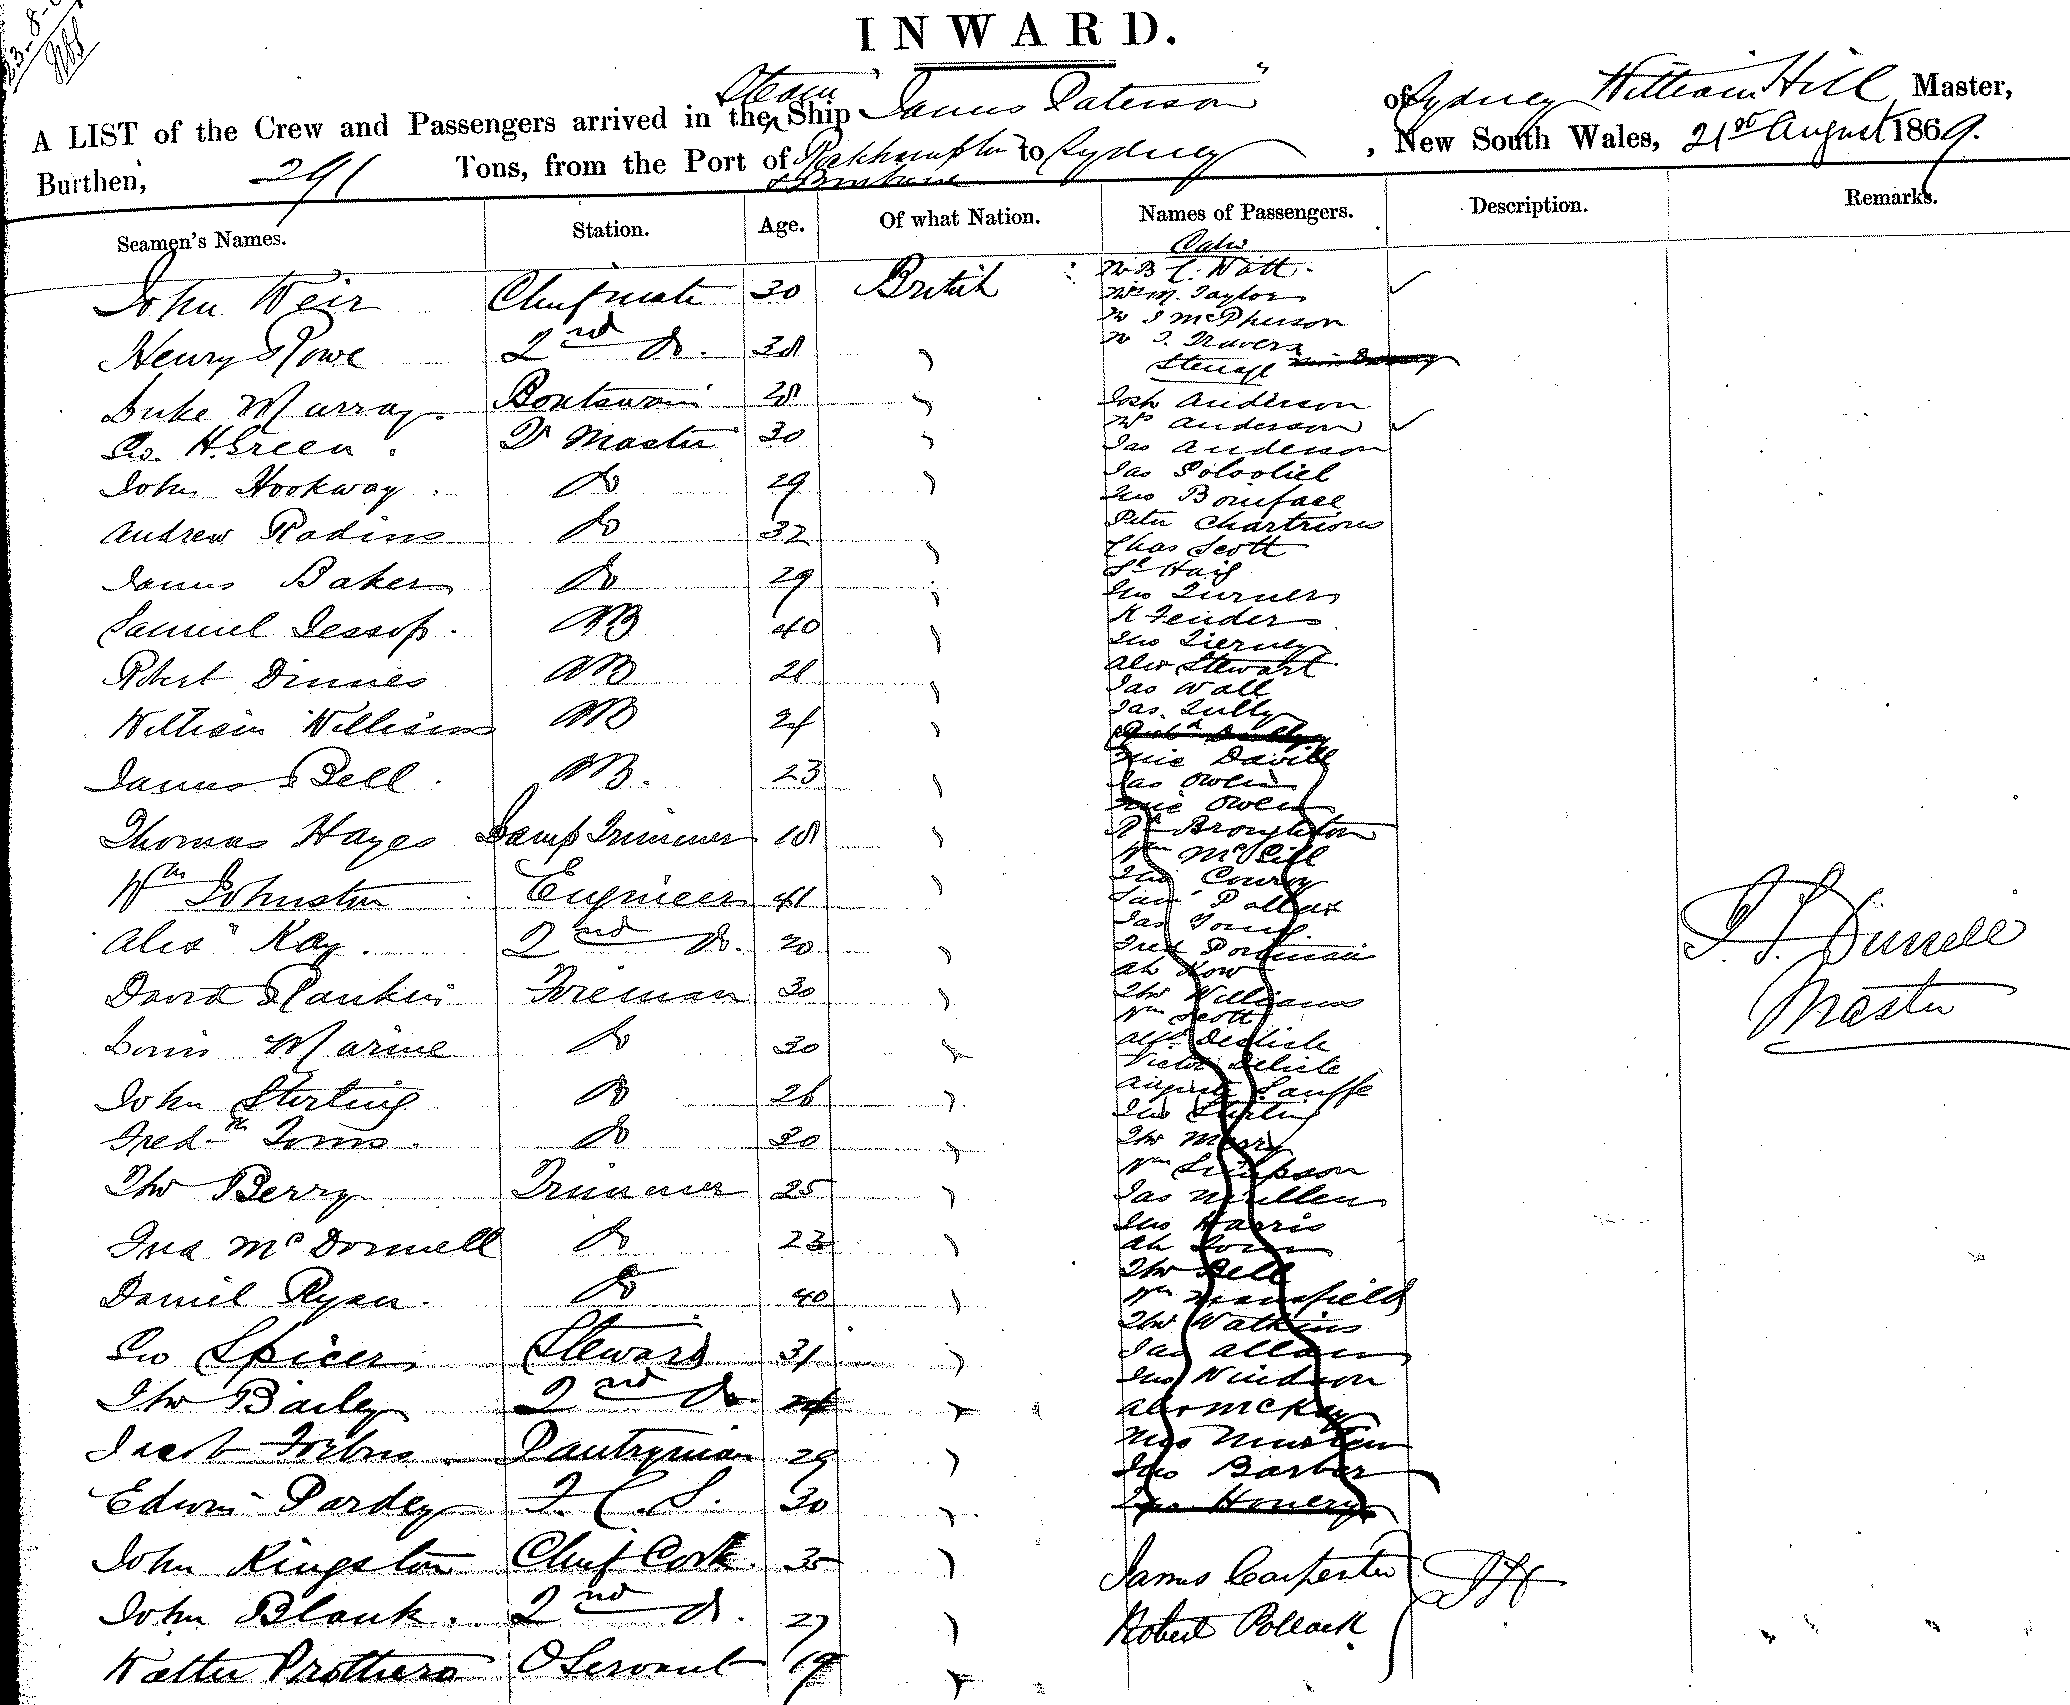 INWARD.
Steam
A LIST of the Crew and Passengers arrived in the Ship "James Paterson" of Sydney William Hill Master,
Burthen, 291 Tons, from the Port of Rockhampton to Sydney, New South Wales, 21st August 1869.
& Brisbane
Seamen's Names. Station. Age. Of what Nation. Names of Passengers. Description. Remarks.
John Weir Chief mate 30 British
Henry Rowe 2nd Do. 38
Luke Murray Boatswain 28
Geo. H. Green Qr Master 30
John Hookway Do 29
Andrew Rodins Do 32
James Baker Do 29
Samuel Jessop AB 40
Robert Dinnies AB 28
William Williams AB 24
James Bell AB. 23
Thomas Hayes Lamp Trimmer 18
Wm Johnston Engineer 41
Alexr Kay 2nd Do. 30
David Rankin Fireman 30
Louis Marine Do 30
John Sterling Do 26
Fredk Toms Do 30
Thos Berry Trimmer 25
Fred McDonnell Do 23
Daniel Ryan Do 40
Geo Spicer Steward 31
Thos Bailey 2nd Do.
Jacob Forbes Pantryman 29
Edwin Pardey F. C. S. 30
John Kingston Chief Cook 35
John Blank 2nd Do. 27
Walter Prothero O Servant 19
Cabin
Mr B C. Watt
Mrs M. Taylor
Mr J McPherson
Mr T. Travers
Steerage
Josh Anderson
Mrs Anderson
Jas Anderson
Jas
Jno Boniface
Peter
Chas Scott
Haig
Jno Turner
K Fenders
Jno Tierney
Alex Stewart
Jas Wall
Jas. Tully
Davill
Jas Owen
Owen
Broughton
Wm McGill
Jno Conroy
Saml
Jas
Fred
Ah How
Thos Williams
Wm Scott
Alfd Delisle
Victor Delisle
Auguste
Jno Stirling
Thos Merry
Wm Simpson
Jas Mullen
Jno Harris
Ah
Thos Bell
Wm Mansfield
Thos Watkins
Jas Allan
Jno Windson
Alex McKay
Mrs
Jno Barber
James Carpenter
Robert Pollack
Master